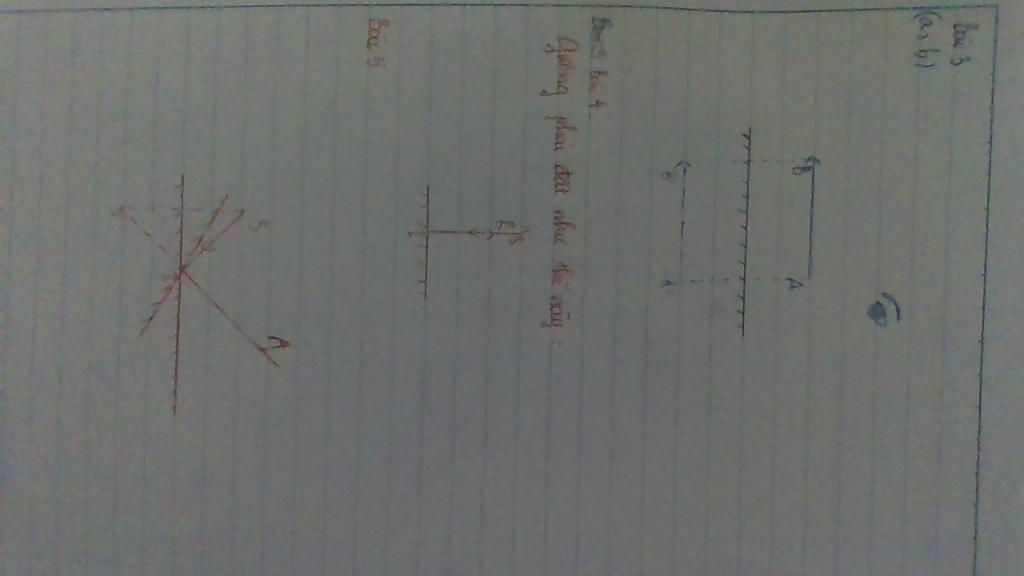 Bài 3
(a, b)
B
A
B'
A'
Bài 4
Gương phải đặt như thế này:
R
S
Bài 5
S
A